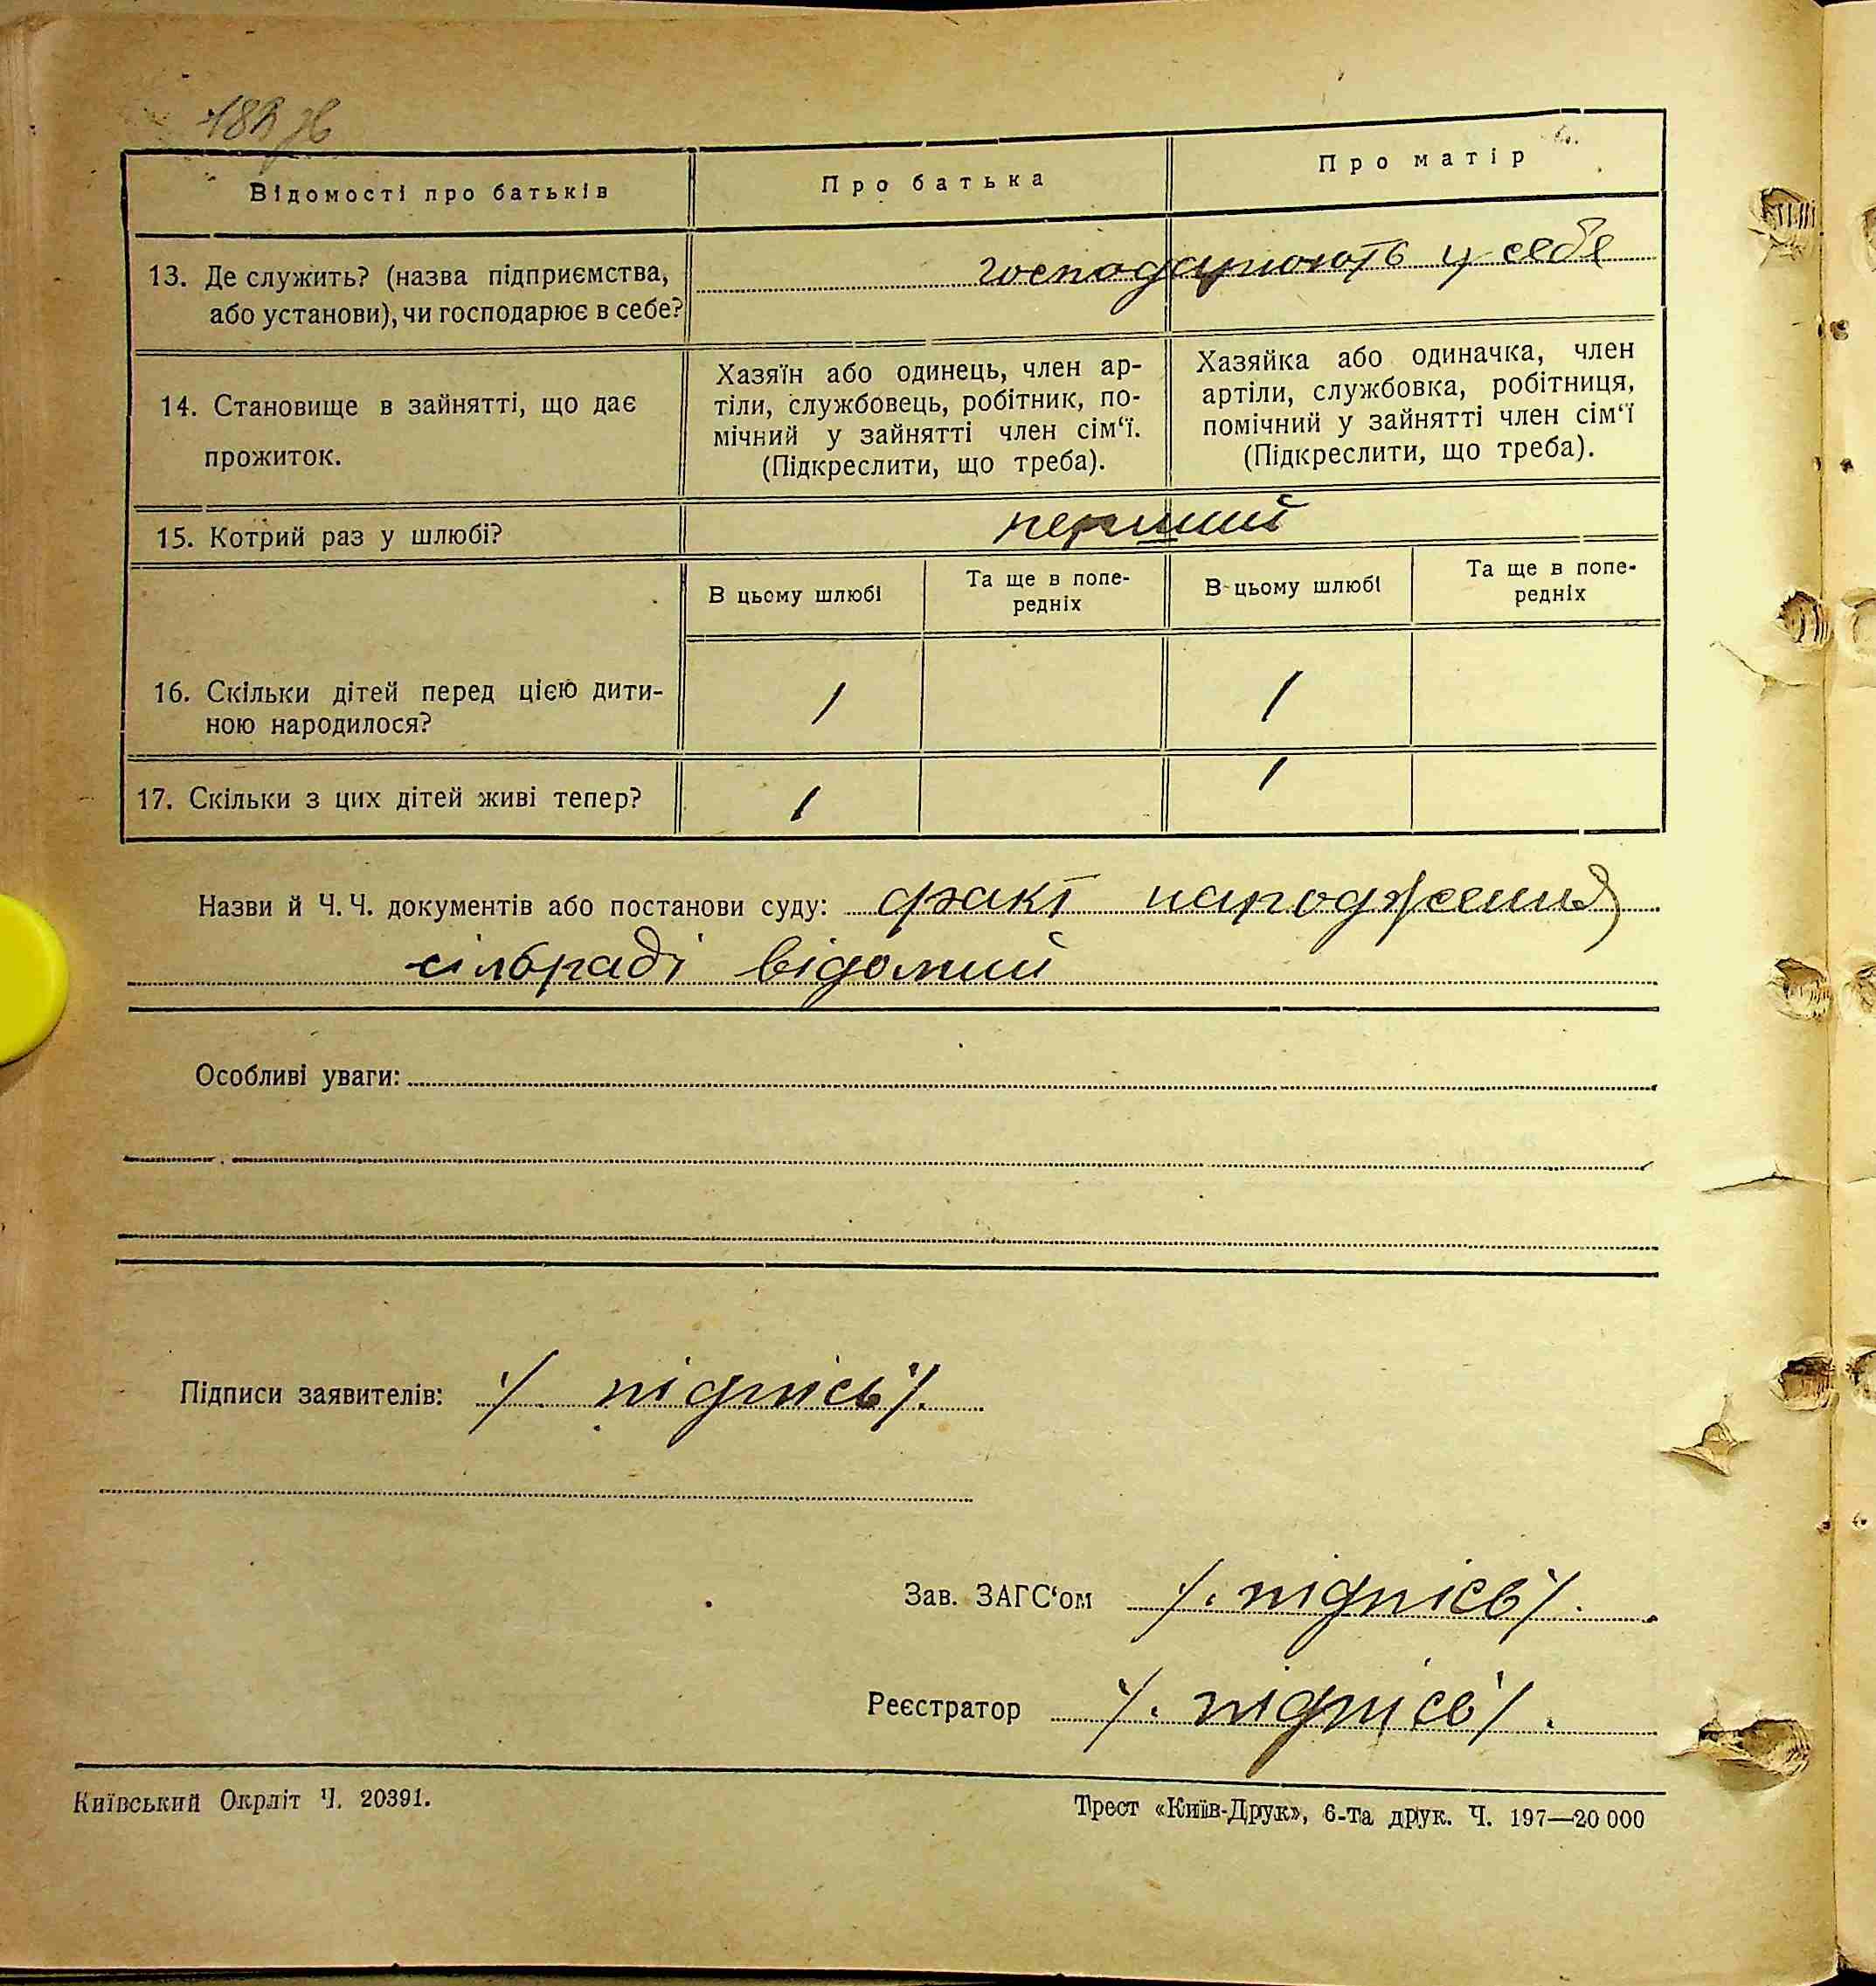 Відомості про батьків
Про батька
Про матір
13. Де служить? (назва підприємства,
або установи), чи господарює в себе?
господарюють у себе
14. Становище в зайнятті, що дає
прожиток.
Хазяїн або одинець, член ар-
тіли, службовець, робітник, по-
мічний у зайнятті член сім‘ї.
(Підкреслити, що треба).
Хазяйка або одиначка, член
артіли, службовка, робітниця,
помічний у зайнятті член сім‘ї
(Підкреслити, що треба).
15. Котрий раз у шлюбі?
перший
В цьому шлюбі
Та ще в попе-
редніх
В цьому шлюбі
Та ще в попе-
редніх
16. Скільки дітей перед цією дити-
ною народилося?
1
1
17. Скільки з цих дітей живі тепер?
1
1
Назви й Ч. Ч. документів або постанови суду: факт народження
сільраді відомий
Особливі уваги:
Підписи заявителів: /. підпісь /.
Зав. ЗАГС‘ом /. підпісь /.
Реєстратор /. підпісь /.
Київський Окрліт Ч. 20391.
Трест «Київ-Друк», 6-та друк. Ч. 197—20 000